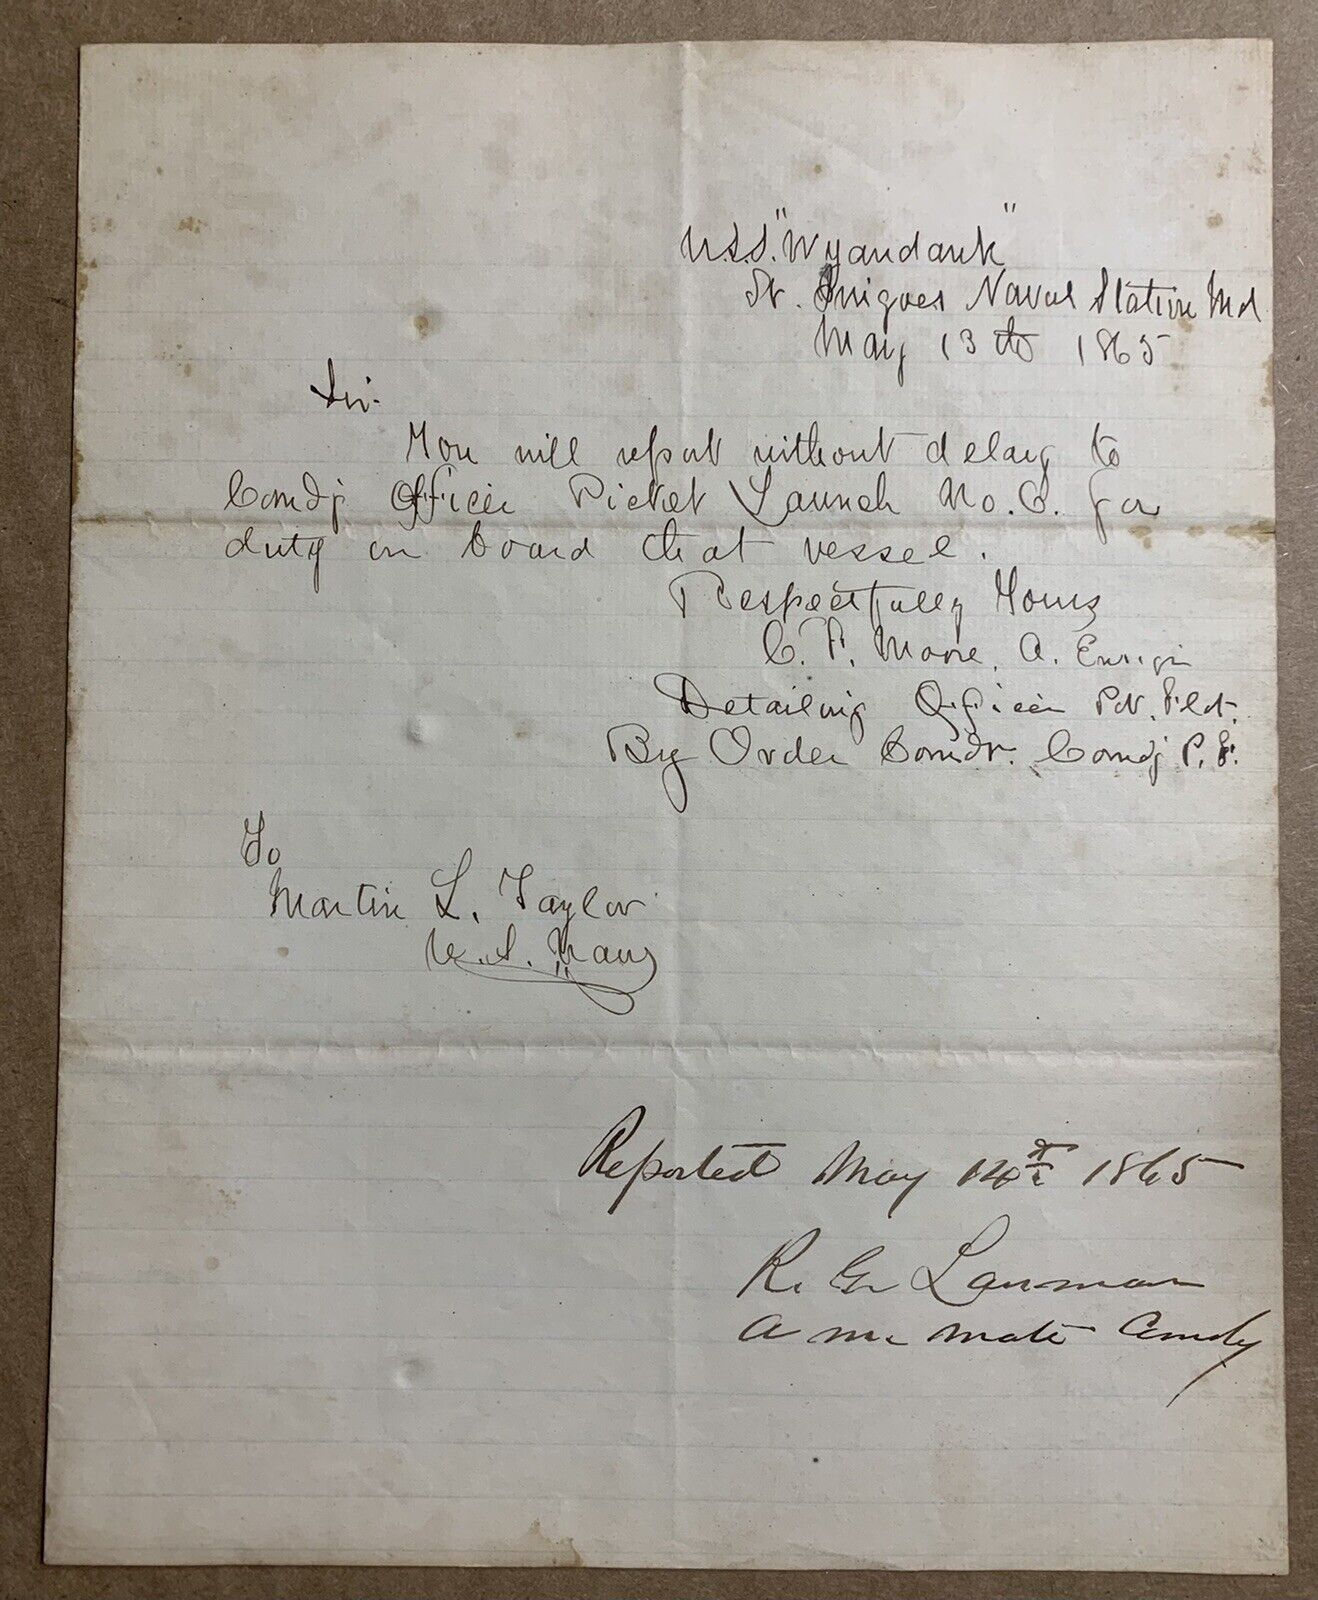 U.S.S. "Wyandank"
St. Inigoes Naval Station Md
May 13th 1865
Sir.
You will report without delay to
Comdg Officer Picket Launch No. 6. for
duty on board that vessel.
Respectfully Yours
C. F. Moore, A. Ensign
Detailing Officer Pot. Flot.
By Order Comdr. Comdg P. F.
To
Martin L. Taylor
U.S. Navy
Reported May 14th 1865
R. G. Lauman
A M. Mate Comdg